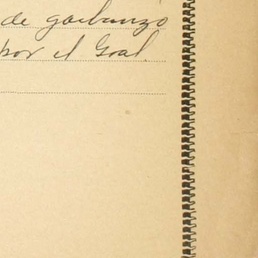 de garbanzo
por el Goal.